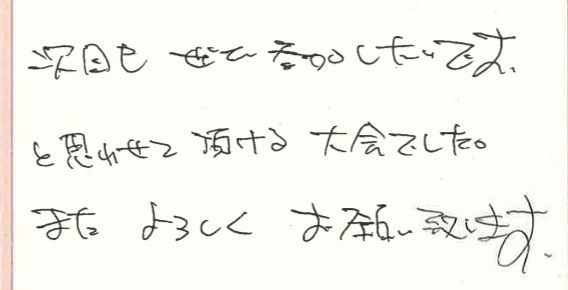 次回も ぜひ参加したいです、
と思わせて頂ける 大会でした。
また よろしく お願い致します、